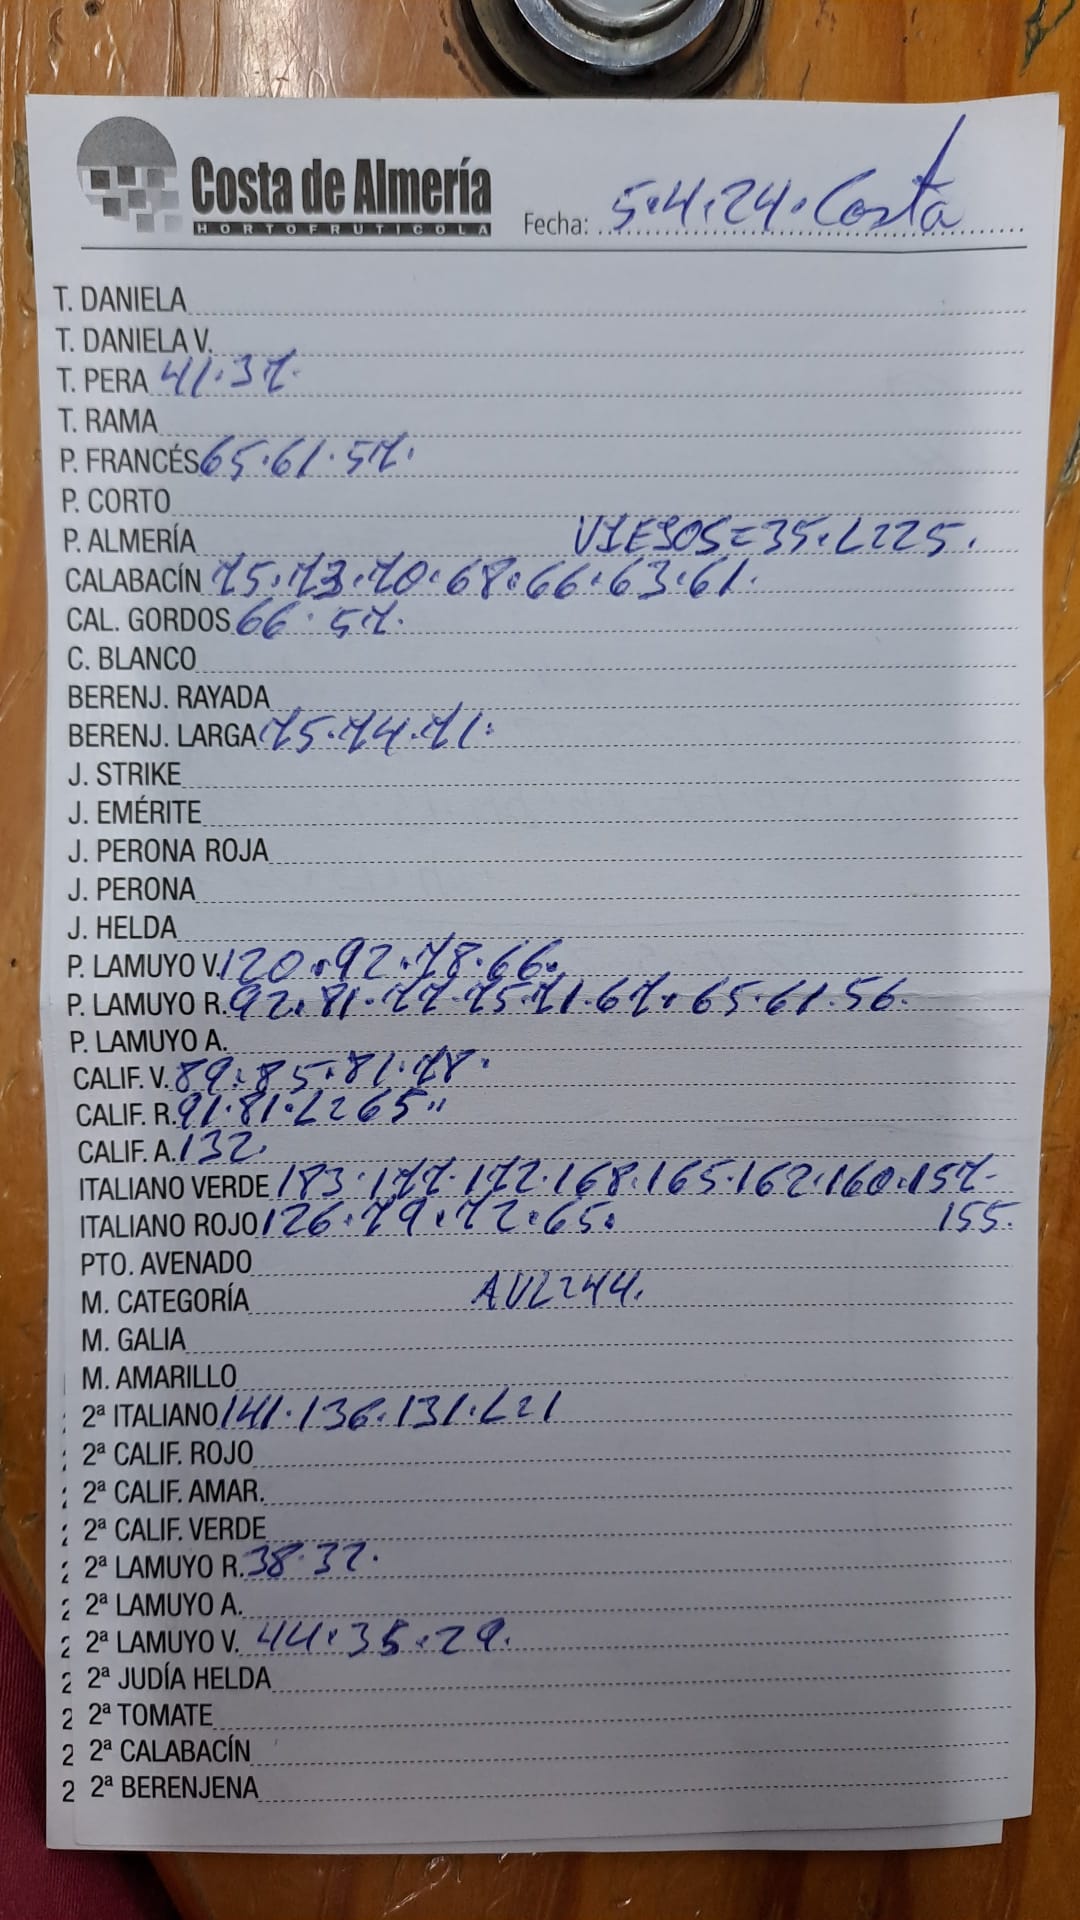 Costa de Almería
HORTOFRUTICOLA
Fecha: 5.4.24. Costa
T. DANIELA
T. DANIELA V.
T. PERA 41.37.
T. RAMA
P. FRANCÉS 65.61.57.
P. CORTO
VIEJOS=35.L225.
P. ALMERÍA
CALABACÍN 75.73.70.68.66.63.61.
CAL. GORDOS 66.57.
C. BLANCO
BERENJ. RAYADA
BERENJ. LARGA 75.74.71.
J. STRIKE
J. EMÉRITE
J. PERONA ROJA
J. PERONA
J. HELDA
P. LAMUYO V. 120.92.78.66.
P. LAMUYO R. 92.81.77.75.71.67.65.61.56.
P. LAMUYO A.
CALIF. V. 89.85.81.78.
CALIF. R. 91.81.L265"
CALIF. A. 132.
ITALIANO VERDE 183.177.172.168.165.162.160.157.
155.
ITALIANO ROJO 126.79.72.65.
PTO. AVENADO
AVL244.
M. CATEGORÍA
M. GALIA
M. AMARILLO
2ª ITALIANO 141.136.131.L21
2ª CALIF. ROJO
2ª CALIF. AMAR.
2ª CALIF. VERDE
2ª LAMUYO R. 38.32.
2ª LAMUYO A.
2ª LAMUYO V. 44.35.29.
2ª JUDÍA HELDA
2ª TOMATE
2ª CALABACÍN
2ª BERENJENA